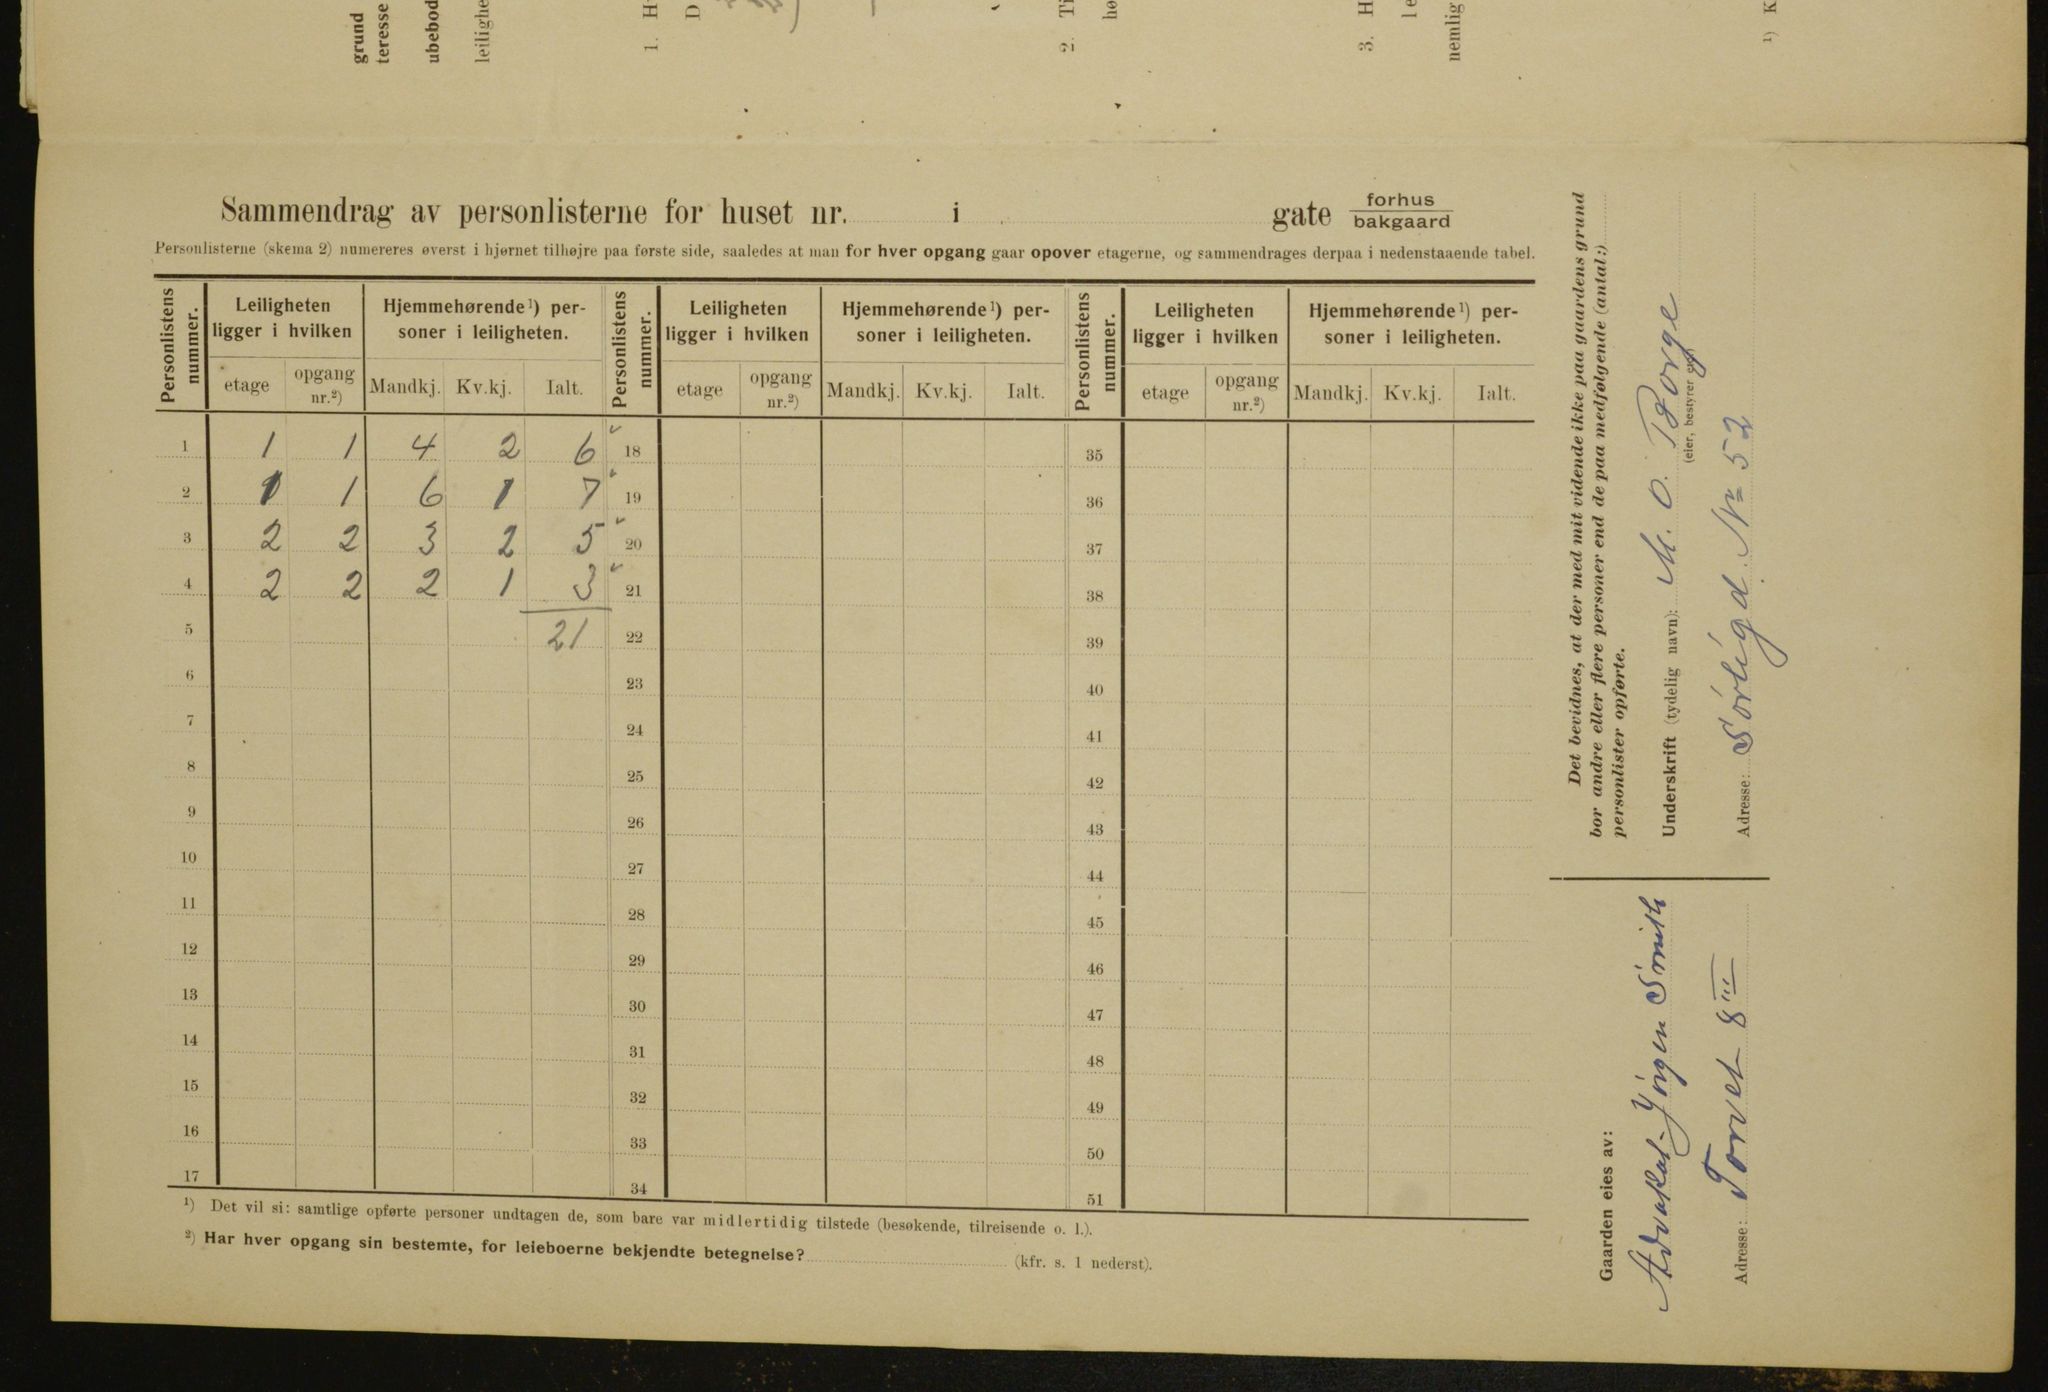 grund
teresse
ubebod
leilighe
1. H
D
2. Ti
hø
3. H
le
nemlig
¹) K
Sammendrag av personlisterne for huset nr. i gate forhus
bakgaard
Personlisterne (skema 2) numereres øverst i hjørnet tilhøjre paa første side, saaledes at man for hver opgang gaar opover etagerne, og sammendrages derpaa i nedenstaaende tabel.
Personlistens nummer. Leiligheten ligger i hvilken Hjemmehørende¹) personer i leiligheten. Personlistens nummer. Leiligheten ligger i hvilken Hjemmehørende¹) personer i leiligheten. Personlistens nummer. Leiligheten ligger i hvilken Hjemmehørende¹) personer i leiligheten.
etage opgang nr.²) Mandkj. Kv.kj. Ialt. etage opgang nr.²) Mandkj. Kv.kj. Ialt. etage opgang nr.²) Mandkj. Kv.kj. Ialt.
1 1 1 4 2 6 18 35
2 1 1 6 1 7 19 36
3 2 2 3 2 5 20 37
4 2 2 2 1 3 21 38
5 21 22 39
6 23 40
7 24 41
8 25 42
9 26 43
10 27 44
11 28 45
12 29 46
13 30 47
14 31 48
15 32 49
16 33 50
17 34 51
¹) Det vil si: samtlige opførte personer undtagen de, som bare var midlertidig tilstede (besøkende, tilreisende o. l.).
²) Har hver opgang sin bestemte, for leieboerne bekjendte betegnelse? (kfr. s. 1 nederst).
Det bevidnes, at der med mit vidende ikke paa gaardens grund
bor andre eller flere personer end de paa medfølgende (antal:)
personlister opførte.
Underskrift (tydelig navn): M. O. Borge
(eier, bestyrer
Adresse: Sörligd. No 52
Gaarden eies av:
Advokat Jörgen Smith
Adresse: Torvet 8 III